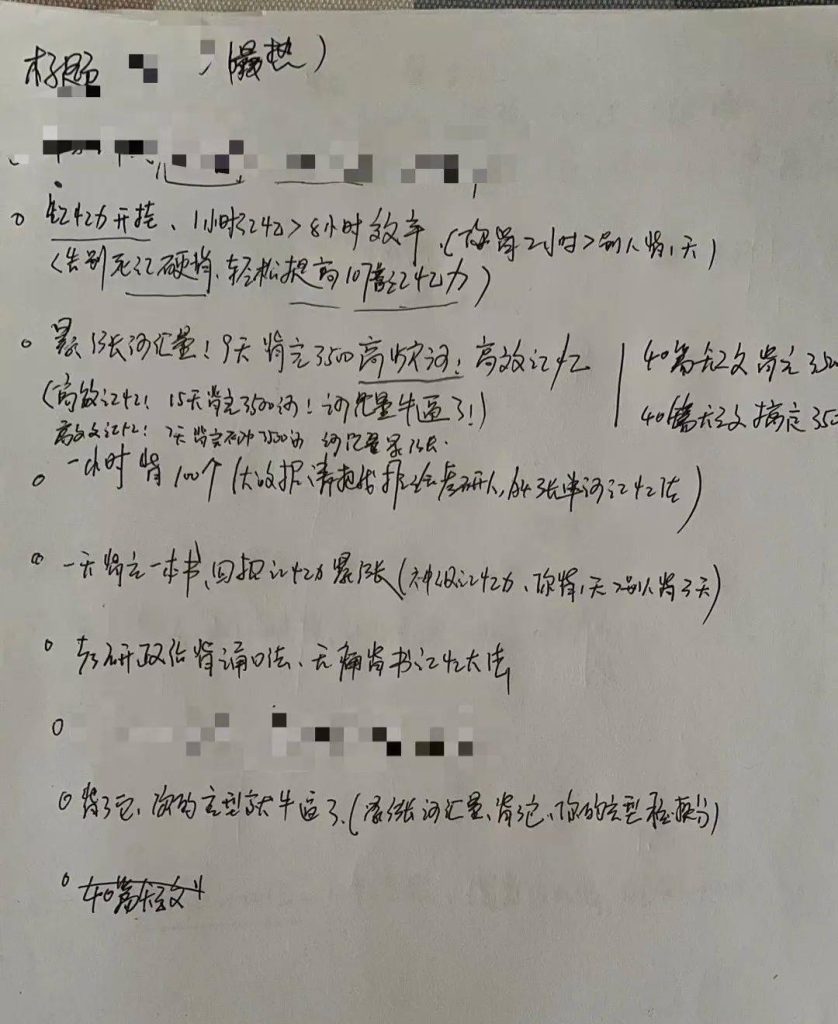 标题 (最热)
记忆力开挂、1小时记忆>8小时效率、(你背2小时>别人背1天)
(告别死记硬背、轻松提高10倍记忆力)
暴涨词汇量!9天背完3500高频词!高效记忆
40篇短文背完350
(高效记忆!15天背完3500词!词汇量牛逼了!)
40篇短文搞定350
高效记忆!7天背完 3500词 词汇量暴涨.
一小时背100个(大数据、请把我推给考研人, 单词记忆法)
一天背完一本书、回报记忆力暴涨(神级记忆力、你背1天>别人背3天)
考研政治背诵口法、无痛背书记忆大法
背完它、你的完型就牛逼了、(暴涨词汇量、背完它、你的完型 满分)
40篇短文